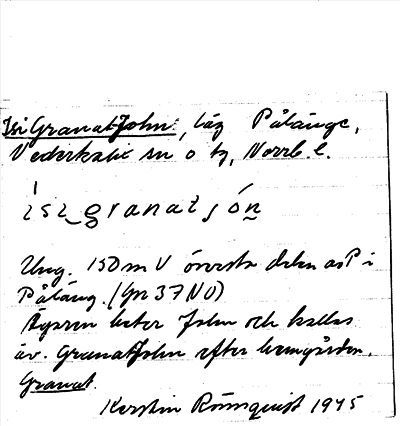 Isi GranatJohn, läg Pålänge,
Nederkalix sn o tg, Norrb. l.
isi granatjón
Ung. 150 m V översta delen av P i
Påläng. (Gn 37 NO)
Ägaren heter John och kallas
äv. GranatJohn efter hemgården,
Granat.
Kerstin Rönnquist 1945